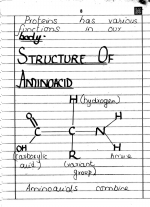 Proteins has various
functions in our
body.
STRUCTURE OF
AMINOACID
H (hydrogen)
O
H
C C N
OH R H
(carboxylic (variant Amine
acid) group)
Aminoacids combine